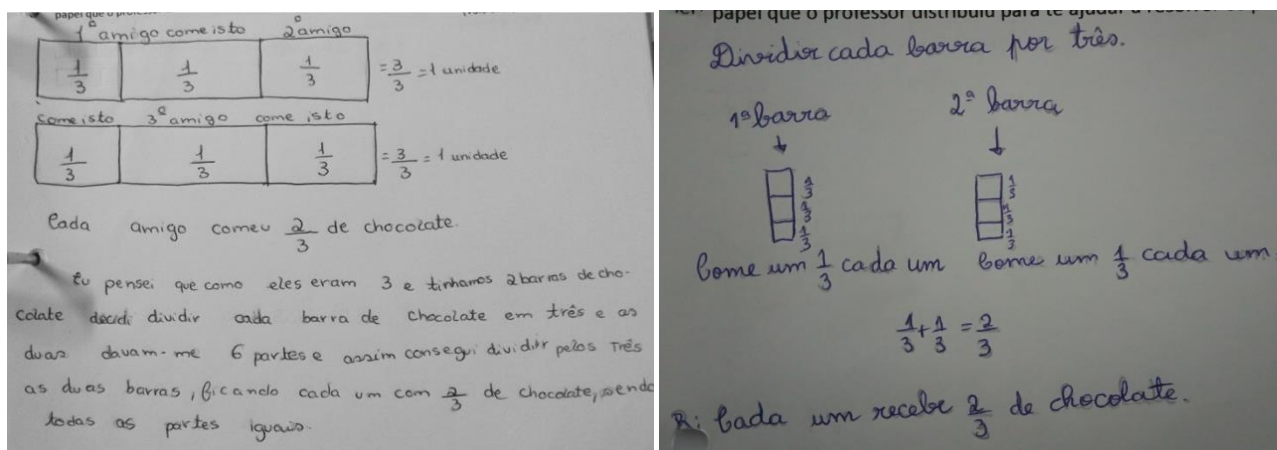 papel que o profess
1º amigo come isto 2º amigo
1/3 1/3 1/3 = 3/3 = 1 unidade
come isto 3º amigo come isto
1/3 1/3 1/3 = 3/3 = 1 unidade
Cada amigo comeu 2/3 de chocolate.
Eu pensei que como eles eram 3 e tinhamos 2 barras de cho-
colate decidi dividir cada barra de chocolate em três e as
duas davam-me 6 partes e assim consegui dividir pelos três
as duas barras, ficando cada um com 2/3 de chocolate, sendo
todas as partes iguais.
papel que o professor distribuiu para te ajudar a
Dividir cada barra por três.
1ª barra 2ª barra
1/3 1/3
1/3 1/3
1/3 1/3
Come um 1/3 cada um Come um 1/3 cada um
1/3 + 1/3 = 2/3
R: Cada um recebe 2/3 de chocolate.